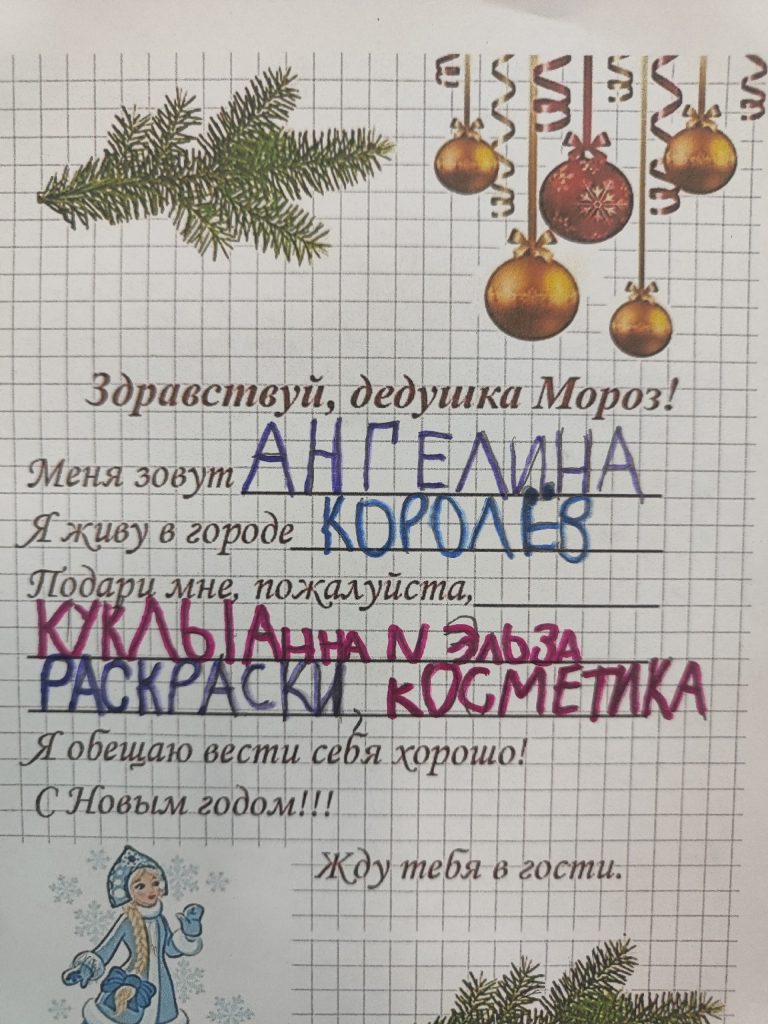 Здравствуй, дедушка Мороз!
Меня зовут АНГЕЛИНА
Я живу в городе КОРОЛЁВ
Подари мне, пожалуйста,
КУКЛЫ АННА И ЭЛЬЗА
РАСКРАСКИ, КОСМЕТИКА
Я обещаю вести себя хорошо!
С Новым годом!!!
Жду тебя в гости.